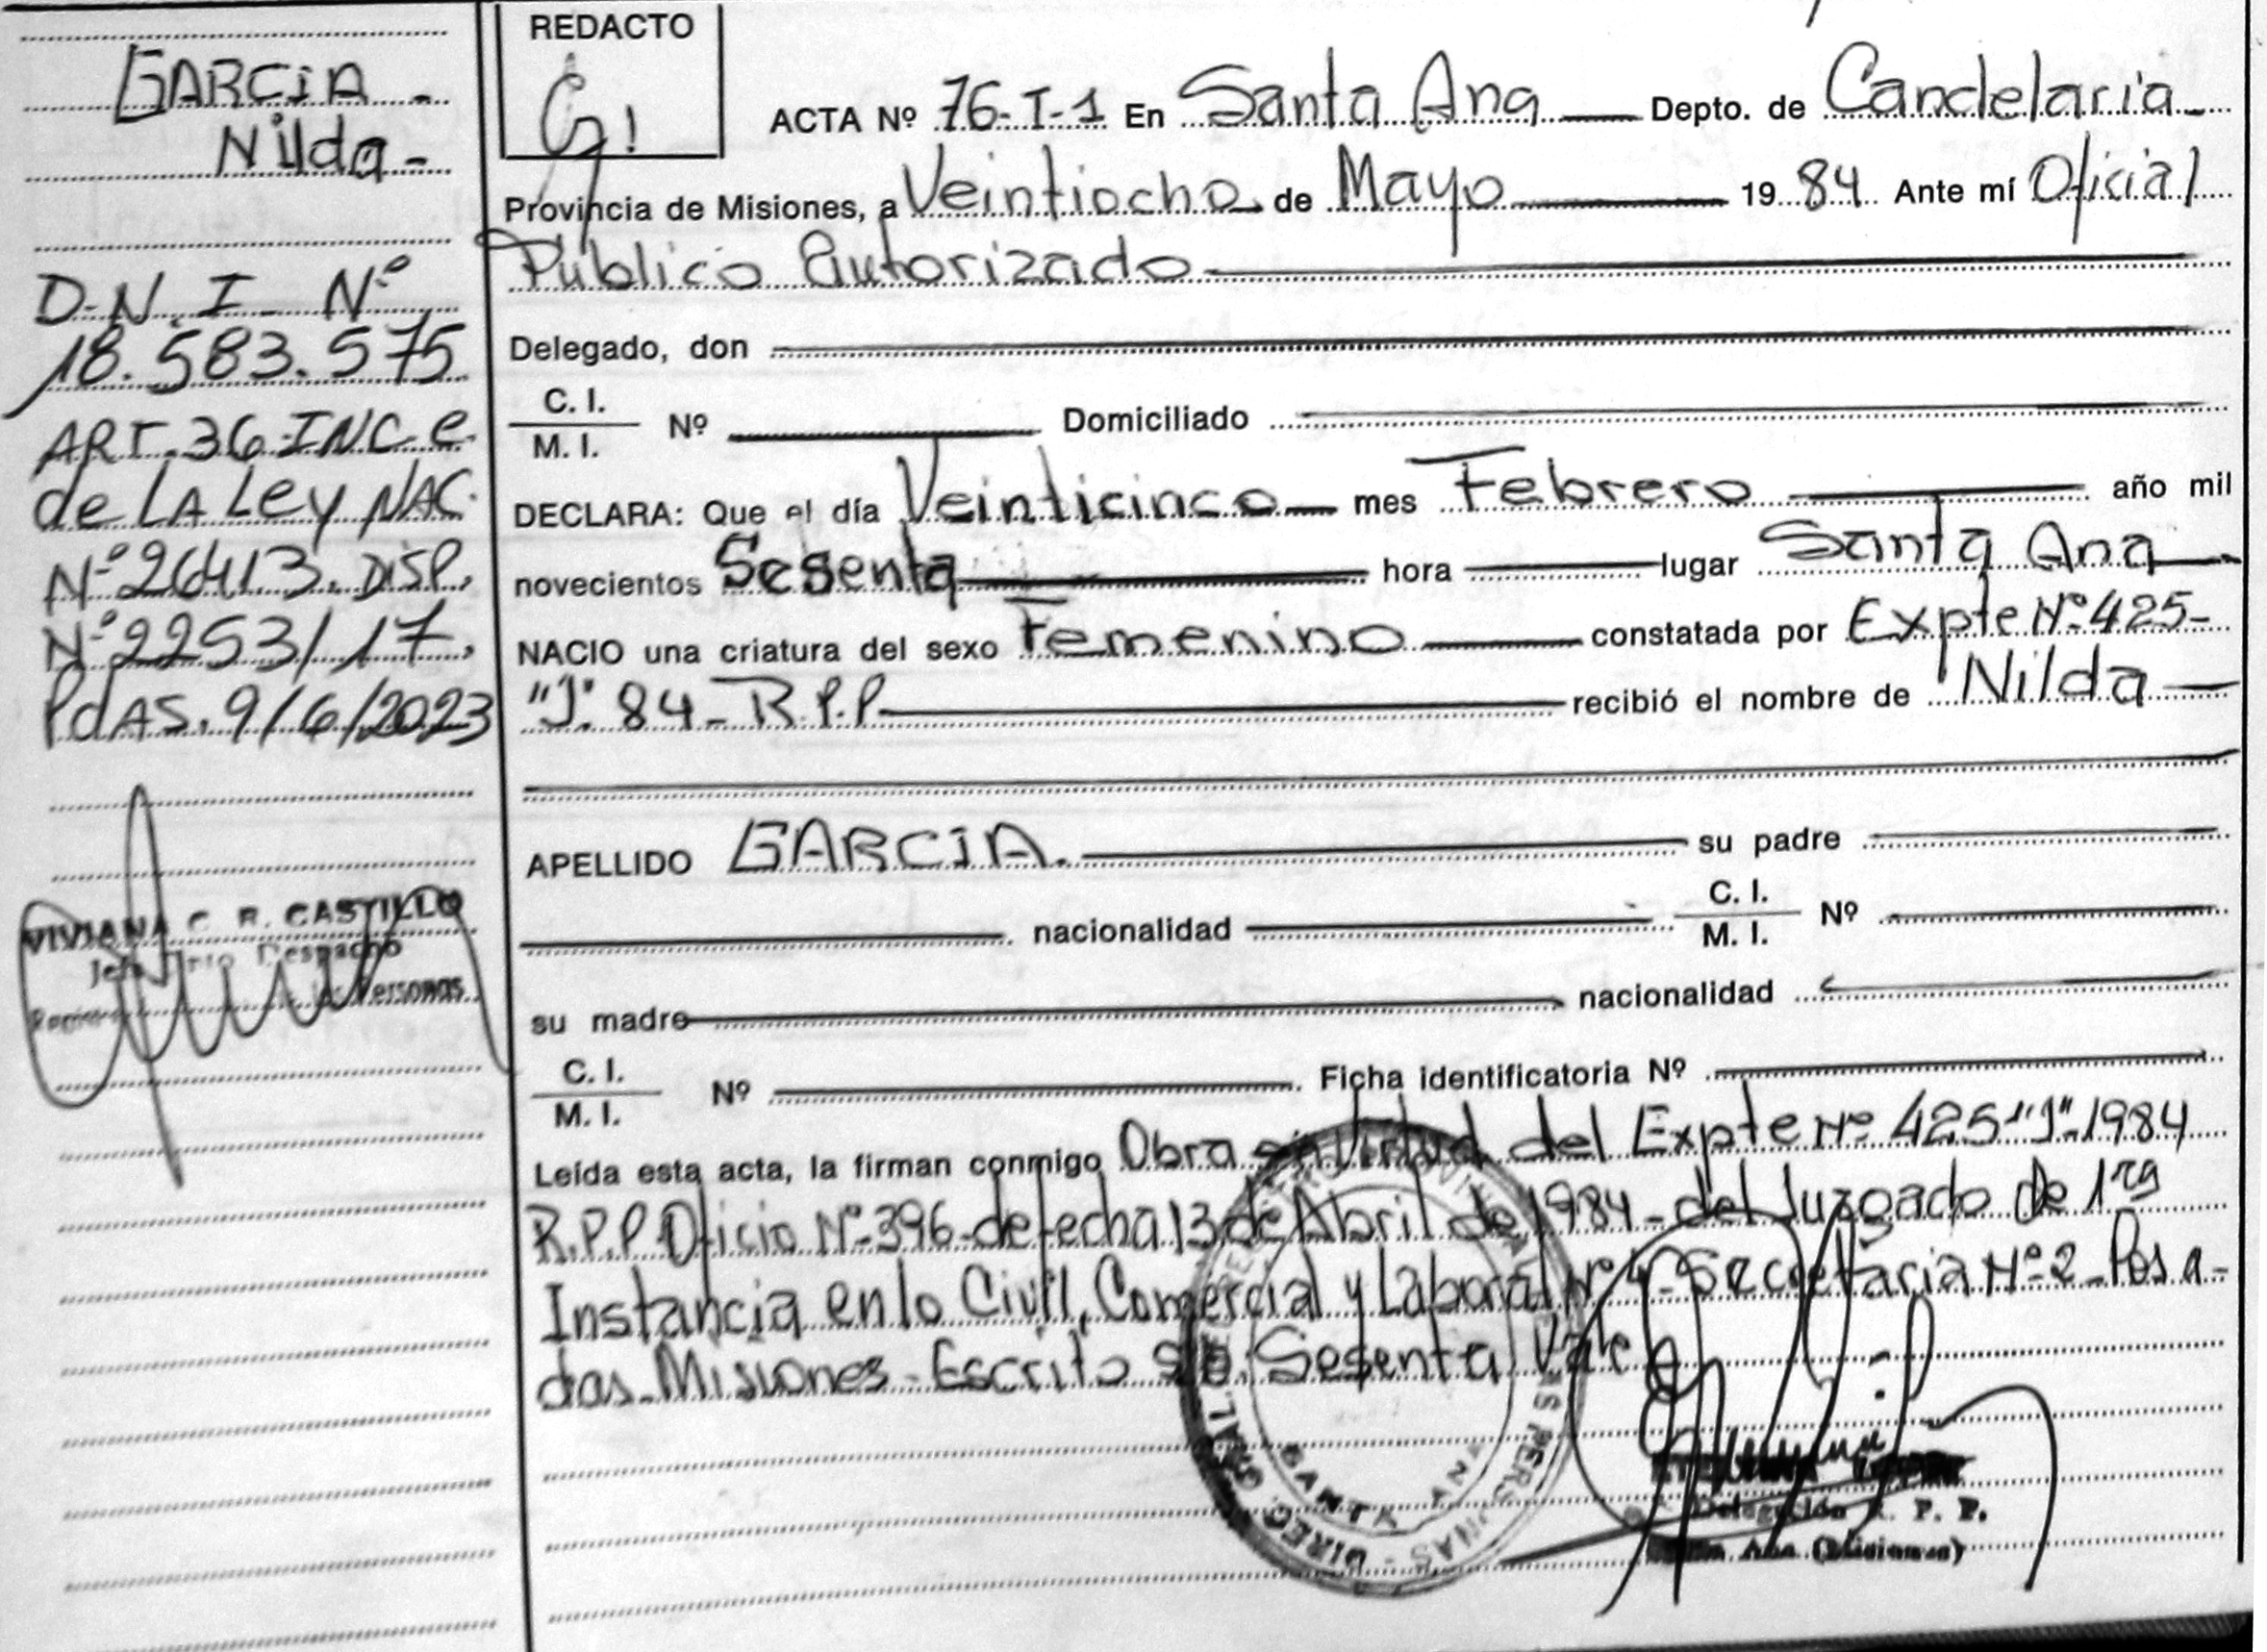 GARCIA -
Nilda -
D.N.I. Nº
18.583.575
ART. 36 INC e
de LA Ley NAC.
Nº 26413. DISP.
Nº 2253/17.
PdAS. 9/6/2023
VIVIANA C. R. CASTILLO
Despacho
Personas
REDACTO
ACTA Nº 76-I-1 En Santa Ana Depto. de Candelaria
Provincia de Misiones, a Veintiocho de Mayo 1984 Ante mí Oficial
Público Autorizado
Delegado, don
C. I.
M. I. Nº Domiciliado
DECLARA: Que el día Veinticinco mes Febrero año mil
novecientos Sesenta hora lugar Santa Ana
NACIO una criatura del sexo Femenino constatada por Expte Nº 425-
"J" 84-R.P.P. recibió el nombre de Nilda
APELLIDO GARCIA. su padre
nacionalidad C. I.
M. I. Nº
su madre nacionalidad
C. I.
M. I. Nº Ficha identificatoria Nº
Leída esta acta, la firman conmigo Obra en Virtud del Expte Nº 425 "J" 1984
R.P.P. Oficio Nº 396 de fecha 13 de Abril de 1984 - del Juzgado de 1ra
Instancia en lo Civil, Comercial y Laboral Nº 4 - Secretaria Nº 2 - Posa-
das - Misiones - Escrito S/B. Sesenta Vale
SANTA ANA
Delegación R. P. P.
Ana (Misiones)